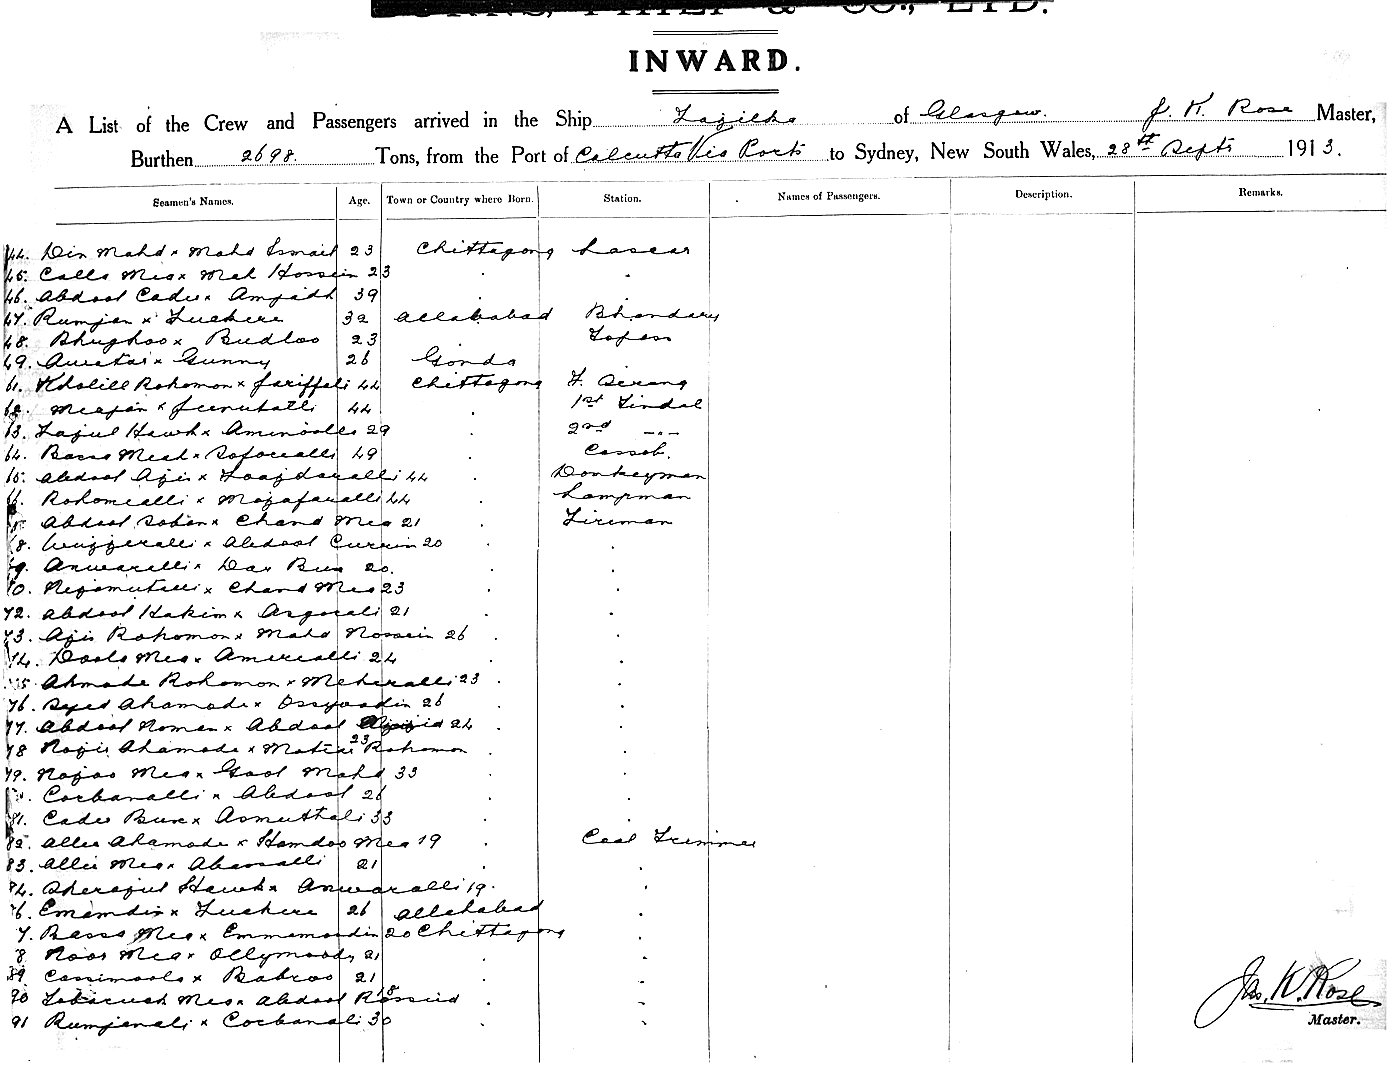 BURNS, PHILP & CO., LTD.
INWARD.
A List of the Crew and Passengers arrived in the Ship Fazilka of Glasgow. J. K. Rose Master,
Burthen 2698. Tons, from the Port of Calcutta Via Ports to Sydney, New South Wales, 28th Septr 1913.
Seamen's Names. Age. Town or Country where Born. Station. Names of Passengers. Description. Remarks.
44. Din Mahd x Mahd Ismail 23 Chittagong Lascar
45. Calla Mea x Mah Hossein 23 . .
46. Abdool Cader x Ampath 39 . .
47. Rumjan x Fuckere 32 Allahabad Bhandary
48. Bhughoo x Budloo 23 Topass
49. x Gunny 26 Gonda
61. Kholill Rohomon x Jariffali 44 Chittagong F. Serang
62. Meajan x 44 . 1st Tindal
63. Fazul Hawk x Aminoolla 29 . 2nd -..-
64. Bassa Meah x 49 . Cassob.
65. Abdool Azis x 44 . Donkeyman
66. Rohomealli x Mozafaralli 44 . Lampman
Abdool Soban x Chand Mea 21 . Fireman
68. x Abdool Currim 20 . .
69. Anwaralli x Dax Bux 20. . .
70. Nezamutalli x Chand Mea 23 . .
72. Abdool Hakim x Asgorali 21 . .
73. Azis Rohomon x Mahd Hossein 26 . .
74. Doola Mea x Amerealli 24 . .
75. Ahmade Rohomon x Meheralli 23 . .
76. Syed Ahamade x 26 . .
77. Abdool Noman x Abdool 24 . .
78 Nazir Ahamade x Rohomon 23 . .
79. Nazao Mea x Gool Mahd 33 . .
Corbanalli x Abdool 26 . .
81. Cader Bux x Asmuthali 33 . .
82. Allee Ahamade x Hamdoo Mea 19 . Coal Trimmer
83. Allee Mea x 21 . .
84. Sherajul Hawk x Anwaralli 19. . .
86. Emamdin x Fuckere 26 Allahabad .
87. Bassa Mea x Emmamoodin 20 Chittagong .
88 Noor Mea x Ollymoody 21 . .
89 x Bakroo 21 . .
90 Mea x Abdool Rossid 18 . .
91 Rumjanali x Corbanali 30 . .
Jas. K. Rose
Master.